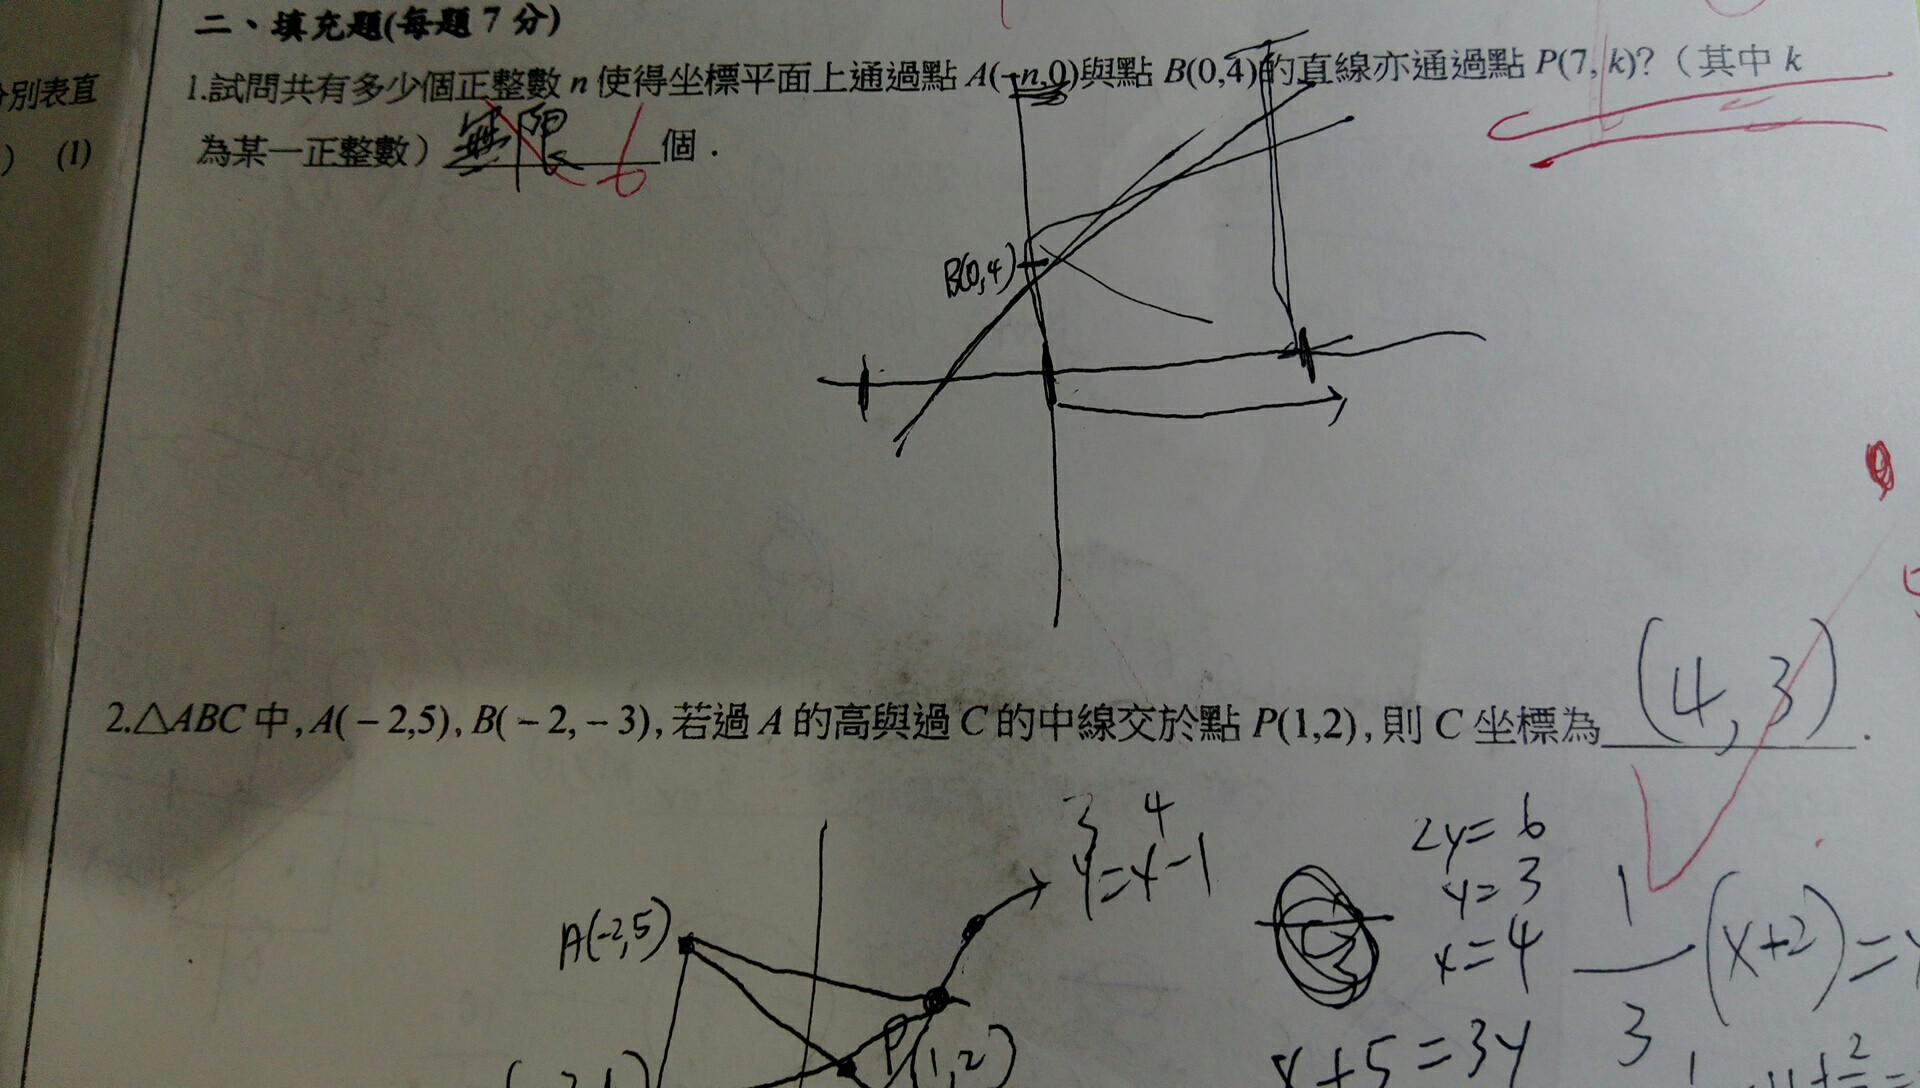 二、填充題(每題 7 分)
1.試問共有多少個正整數 n 使得坐標平面上通過點 A(−n,0)與點 B(0,4)的直線亦通過點 P(7, k)?（其中 k
為某一正整數）無限 6 個．
別表直
) (1)
B(0,4)
2.△ABC 中, A(－2,5), B(－2,－3), 若過 A 的高與過 C 的中線交於點 P(1,2), 則 C 坐標為 (4,3) .
3 4
y=x-1
2y=6
y=3
x=4
1
(x+2)=
3
A(-2,5)
P(1,2)
x+5=3y